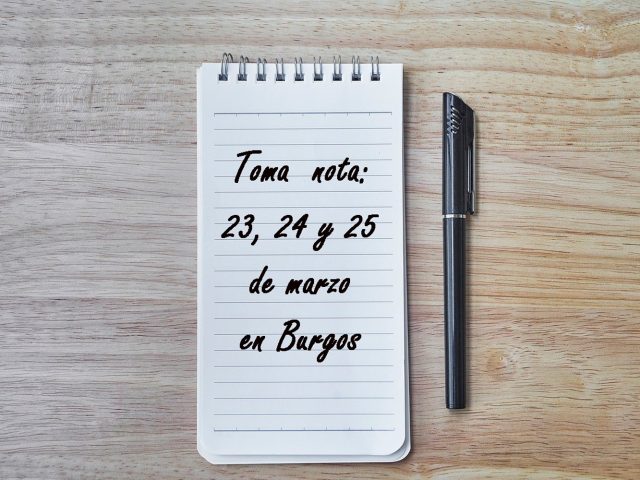 Toma nota:
23, 24 y 25
de marzo
en Burgos